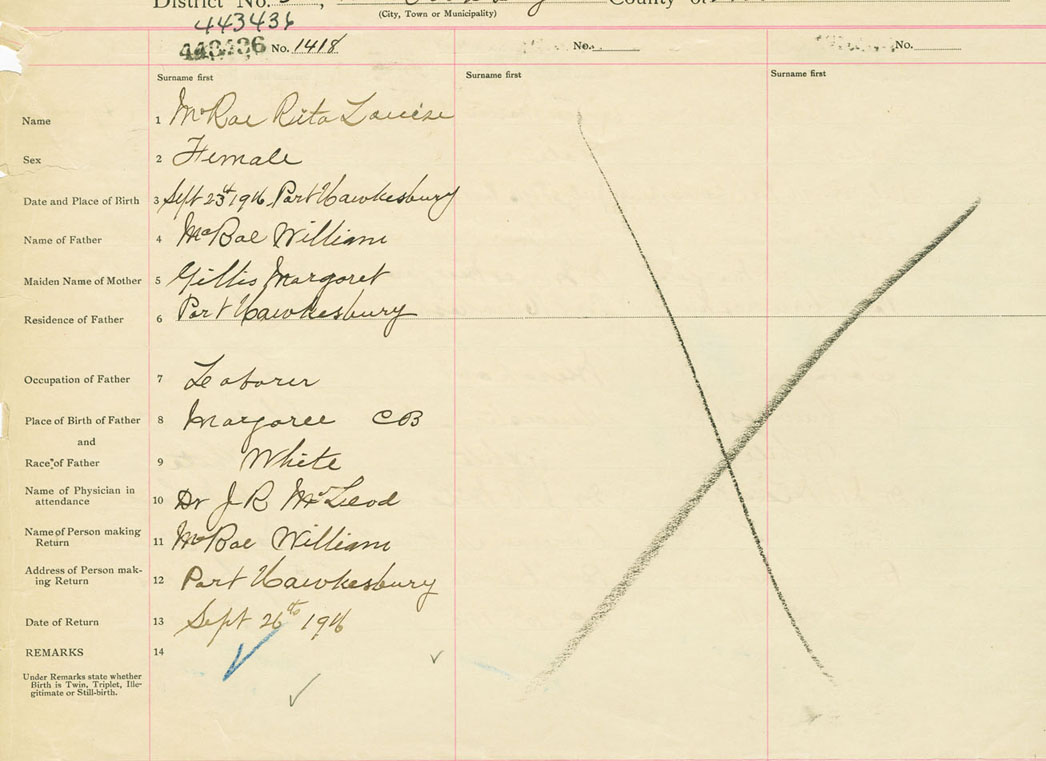 District No. County of
(City, Town or Municipality)
443436
443436 No. 1418 No. No.
Surname first Surname first Surname first
Name 1 McRae Rita Louise
Sex 2 Female
Date and Place of Birth 3 Sept 23rd 1916 Port Hawkesbury
Name of Father 4 McRae William
Maiden Name of Mother 5 Gillis Margaret
Residence of Father 6 Port Hawkesbury
Occupation of Father 7 Laborer
Place of Birth of Father 8 Margaree CB
and
Race of Father 9 White
Name of Physician in
attendance 10 Dr J R McLeod
Name of Person making
Return 11 McRae William
Address of Person mak-
ing Return 12 Port Hawkesbury
Date of Return 13 Sept 26th 1916
REMARKS 14
Under Remarks state whether
Birth is Twin, Triplet, Ille-
gitimate or Still-birth.